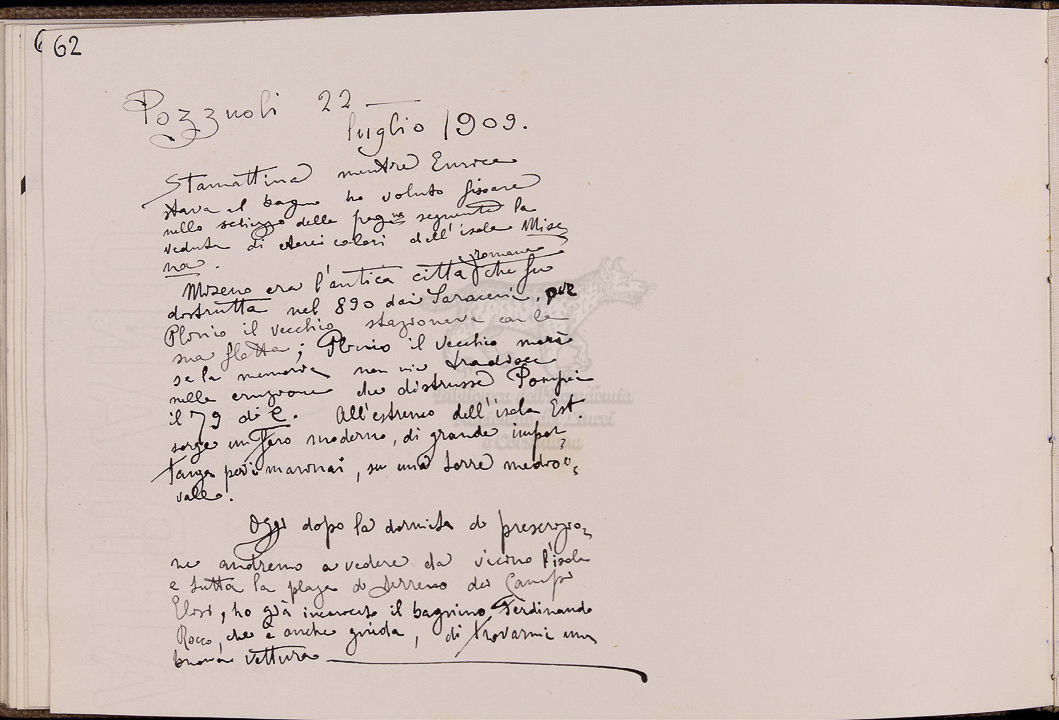 62
Pozzuoli 22 —
luglio 1909.
Stamattina mentre Enrica
stava al bagno ho voluto fissare
nello schizzo della pagina seguente la
veduta di dell'isola Mise
no.
Miseno era l'antica città romana che fu
distrutta nel 890 dai Saraceni, ove
Plinio il vecchio stazionava con la
sua flotta; Plinio il vecchio morì
se la memoria non mi tradisce
nella eruzione che distrusse Pompei
il 79 di C. All'estremo dell'isola Est.
sorge un faro moderno, di grande impor
tanza per i marinai, su una torre medioe
vale.
Oggi dopo la dormita di prescrizio
ne andremo a vedere da vicino l'isola
e tutta la plaga di terreno dei Campi
Elisi, ho già incaricato il bagnino Ferdinando
Rocco, che è anche guida, di trovarmi una
buona vettura